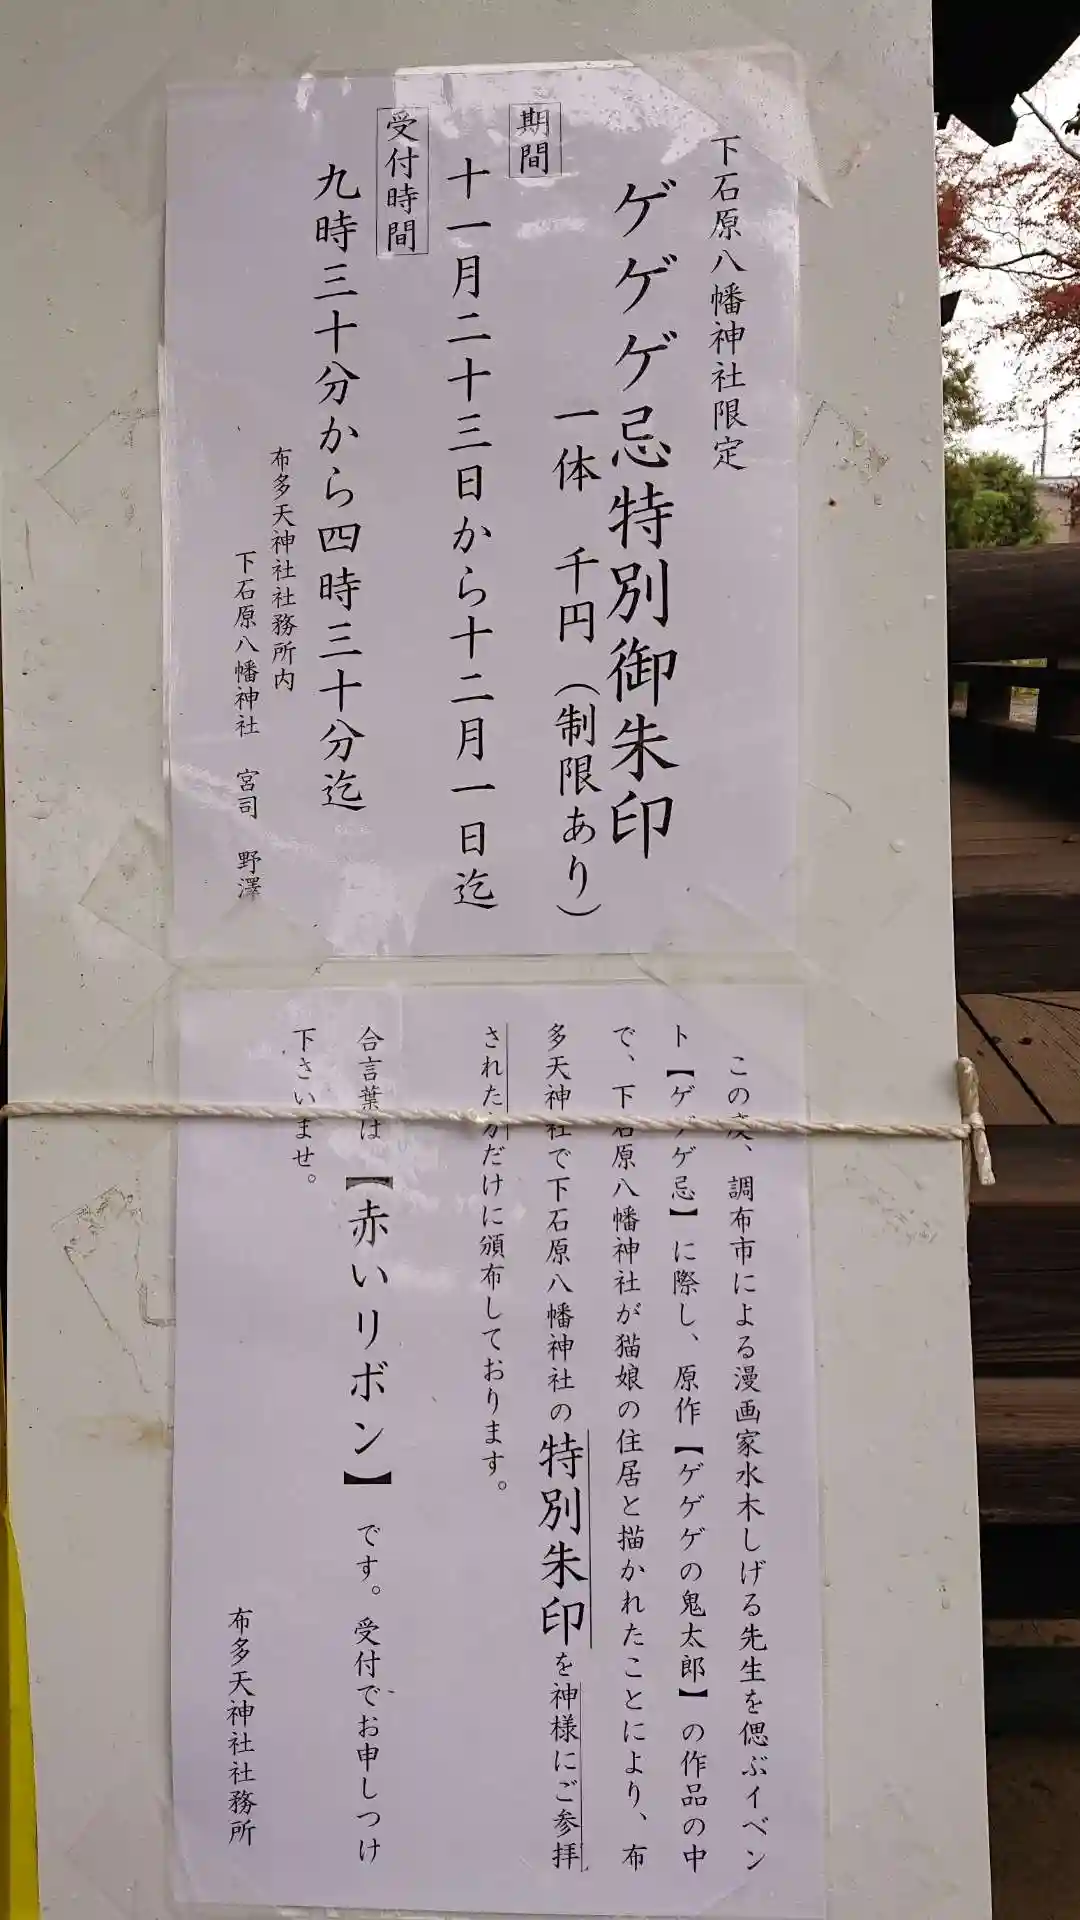 下石原八幡神社限定
ゲゲゲ忌特別御朱印
一体 千円(制限あり)
期間
十一月二十三日から十二月一日迄
受付時間
九時三十分から四時三十分迄
布多天神社社務所内
下石原八幡神社 宮司 野澤
この度、調布市による漫画家水木しげる先生を偲ぶイベン
ト【ゲゲゲ忌】に際し、原作【ゲゲゲの鬼太郎】の作品の中
で、下石原八幡神社が猫娘の住居と描かれたことにより、布
多天神社で下石原八幡神社の特別朱印を神様にご参拝
された方だけに頒布しております。
合言葉は【赤いリボン】です。受付でお申しつけ
下さいませ。
布多天神社社務所